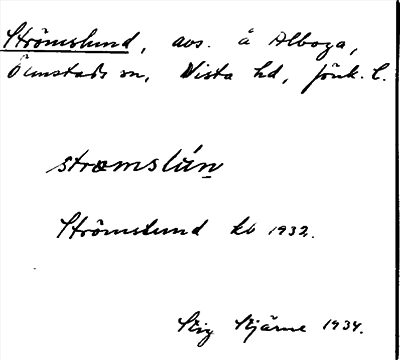 Strömslund, avs. å Alboga,
Ölmstads sn, Vista hd, Jönk. l.
strömslún
Strömslund kb 1932.
Stig Stjärne 1934.